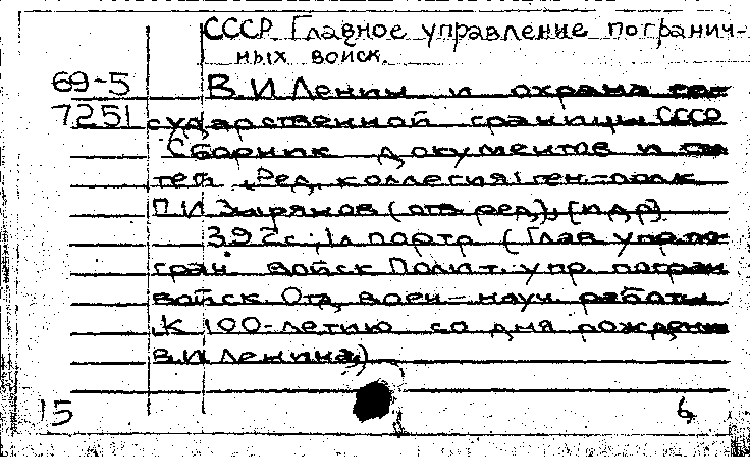 СССР. Главное управление погранич-
ных войск.
69-5 В.И Ленин и охрана го-
7251 сударственной границы СССР
Сборник документов и ста
тей. Ред. коллегия: ген-полк
П.И Зырянов (отв ред), [и др].
392с.; 1л портр (Глав упр по-
гран войск Полит. упр. погран
войск Отд воен-науч работы
К 100-летию со дня рождения
В.И Ленина)
15